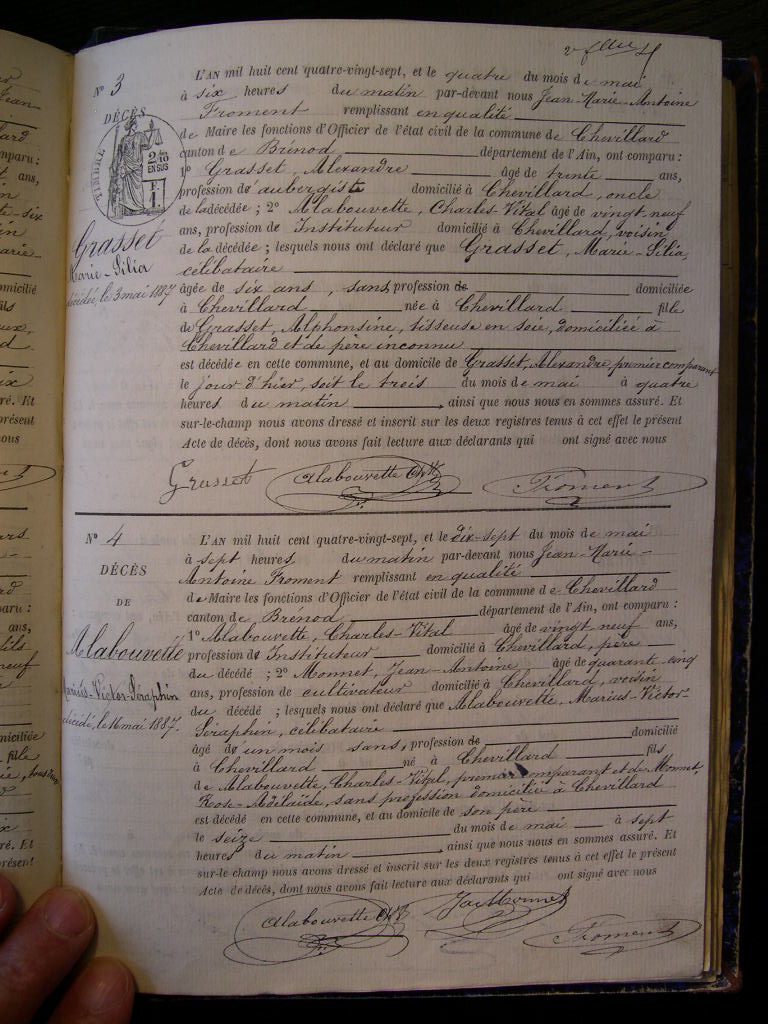 Nº 3
L'AN mil huit cent quatre-vingt-sept, et le quatre du mois de mai
à six heures du matin par-devant nous Jean-Marie-Antoine
Froment remplissant en qualité
de Maire les fonctions d'Officier de l'état civil de la commune de Chevillard
canton de Brénod département de l'Ain, ont comparu :
1º Grasset, Alexandre âgé de trente ans,
profession d'aubergiste domicilié à Chevillard, oncle
de la décédée ; 2º Alabouvette, Charles-Vital âgé de vingt neuf
ans, profession de Instituteur domicilié à Chevillard, voisin
de la décédée ; lesquels nous ont déclaré que Grasset, Marie-Silia,
célibataire
âgée de six ans, sans profession de domiciliée
à Chevillard née à Chevillard fille
de Grasset, Alphonsine, tisseuse en soie, domiciliée à
Chevillard et de père inconnu
est décédée en cette commune, et au domicile de Grasset, Alexandre, premier comparant
le jour d'hier, soit le trois du mois de mai à quatre
heures du matin, ainsi que nous nous en sommes assuré. Et
sur-le-champ nous avons dressé et inscrit sur les deux registres tenus à cet effet le présent
Acte de décès, dont nous avons fait lecture aux déclarants qui ont signé avec nous
DÉCÈS
TIMBRE
2/10
EN SUS
F.
1.
Grasset
Marie-Silia
décédée, le 3 mai 1887
Grasset Alabouvette Ch. V. Froment
Nº 4
DÉCÈS
DE
Alabouvette
Marius-Victor-Séraphin
décédé, le 16 mai 1887.
L'AN mil huit cent quatre-vingt-sept, et le dix-sept du mois de mai
à sept heures du matin par-devant nous Jean-Marie-
Antoine Froment remplissant en qualité
de Maire les fonctions d'Officier de l'état civil de la commune de Chevillard
canton de Brénod département de l'Ain, ont comparu :
1º Alabouvette, Charles-Vital âgé de vingt neuf ans,
profession d'Instituteur domicilié à Chevillard, père
du décédé ; 2º Monnet, Jean-Antoine âgé de quarante-cinq
ans, profession de cultivateur domicilié à Chevillard, voisin
du décédé ; lesquels nous ont déclaré que Alabouvette, Marius-Victor-
Séraphin, célibataire
âgé d'un mois sans, profession de domicilié
à Chevillard né à Chevillard fils
de Alabouvette, Charles-Vital, premier comparant et de Monnet,
Rose-Adélaïde, sans profession domiciliée à Chevillard
est décédé en cette commune, et au domicile de son père
le seize du mois de mai à sept
heures du matin, ainsi que nous nous en sommes assuré. Et
sur-le-champ nous avons dressé et inscrit sur les deux registres tenus à cet effet le présent
Acte de décès, dont nous avons fait lecture aux déclarants qui ont signé avec nous
Alabouvette Ch. V. Monnet Froment